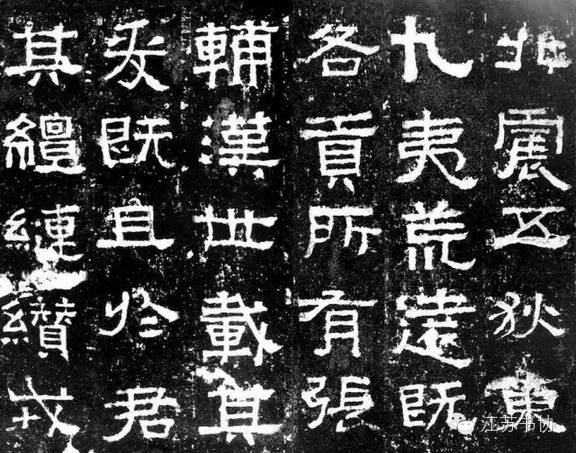 北震五狄東
九夷荒遠既
各貢所有張
輔漢世載其
爰既且於君
其繵縺纘戎
江苏书协